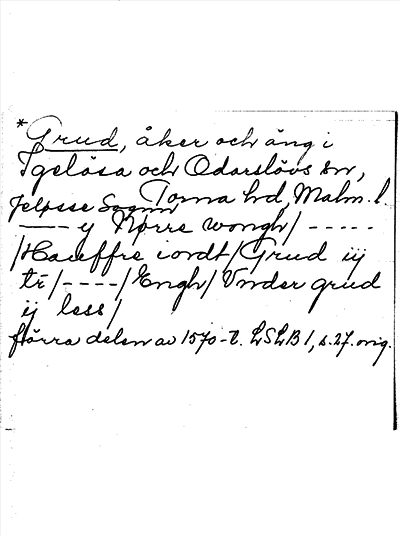 *Grud, åker och äng i
Igelösa och Odarslövs snr,
Torna hd, Malm. l.
Jeløsse Sognn
—— y Nørre wongh/ -----
/Haueffre iordt/Grud iij
tr/----/Engh/Vnder grud
ij less/
förra delen av 1570-t. LSLB 1, s.27. orig.